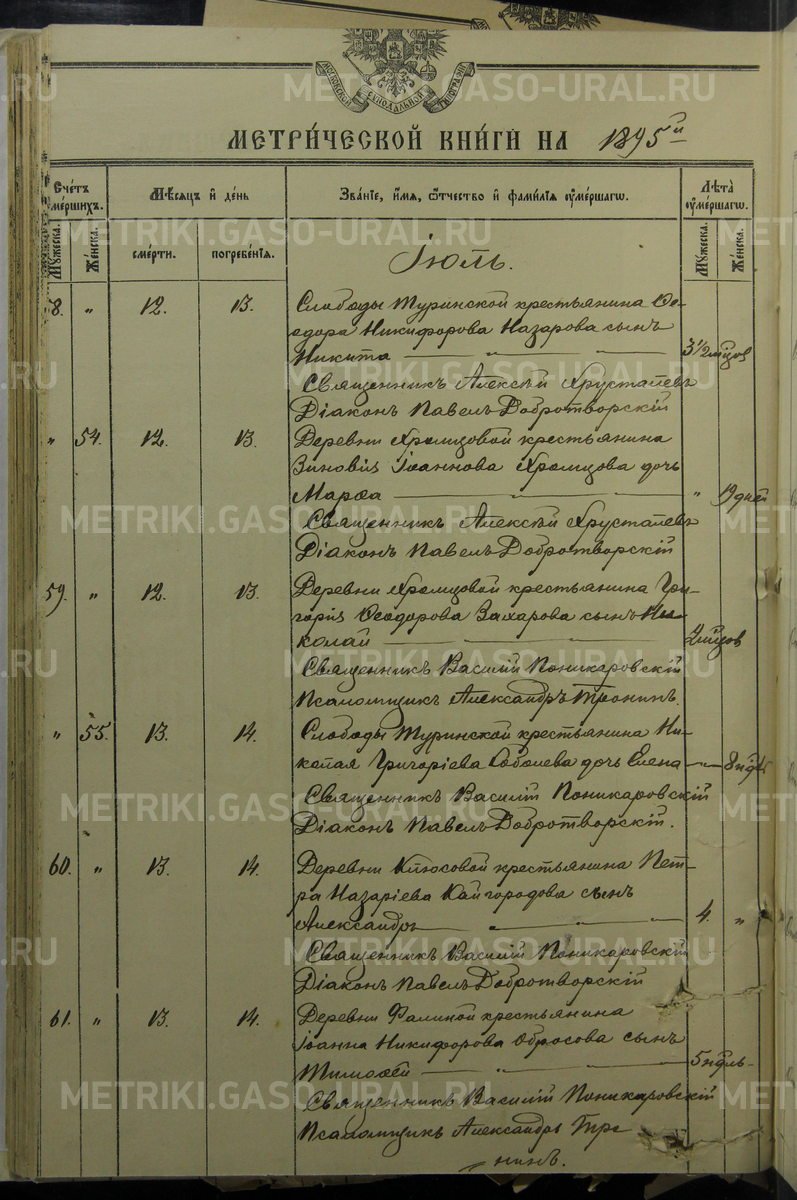 МОСКОВСКОЙ СѴНОДАЛЬНОЙ ТИПОГРАФІИ
METRIKI.GASO-URAL.RU
МЕТРИ́ЧЕСКОЙ КНИ́ГИ НА 1895й
Сче́тъ ᲂу҆ме́ршихъ. Мѣ́сяцъ и҆ де́нь Зва́ніе, и҆́мя, ѻ҆́тчество и҆ фами́лія ᲂу҆ме́ршагѡ. Лѣ́та ᲂу҆ме́ршагѡ.
Мꙋ́жеска. Же́нска. сме́рти. погребе́нія. Мꙋ́жеска. Же́нска.
Іюль.
58. " 12. 13. Слободы Туринской крестьянина Ѳе-
одора Никифорова Назарова сынъ
Никита — " — 3½ мѣцов
Священникъ Алексѣй Хрусталевъ
Діаконъ Павелъ Добротворскій
" 54. 12. 13. Деревни Храмцовой крестьянина
Зиновія Іоаннова Храмцова дочь
Марѳа — " — " 19 дней
Священникъ Алексѣй Хрусталевъ
Діаконъ Павелъ Добротворскій
59. " 12. 13. Деревни Храмцовой крестьянина Гри-
горія Ѳеодорова Захарова сынъ Ни-
колай — " — 2 мѣцов
Священникъ Василій Поникаровскій
Псаломщикъ Александръ Тронинъ.
" 55. 13. 14. Слободы Туринской крестьянина Ни-
колая Григоріева Соболева дочь Елена — 8 нд
Священникъ Василій Поникаровскій
Діаконъ Павелъ Добротворскій.
60. " 13. 14. Деревни Клюсовой крестьянина Пет-
ра Назаріева Кайгородова сынъ
Александръ — " — 4. "
Священникъ Василій Поникаровскій
Діаконъ Павелъ Добротворскій
61. " 13. 14. Деревни Фалиной крестьянина
Іоанна Никифорова Обросова сынъ
Тимоѳей — " — 5 ндѣль
Священникъ Василій Поникаровскій
Псаломщикъ Александръ Тро-
нинъ.